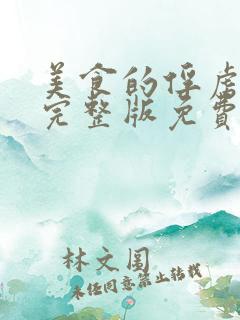 美食的俘虏
完整版免费
林文围
未经同意禁止转载